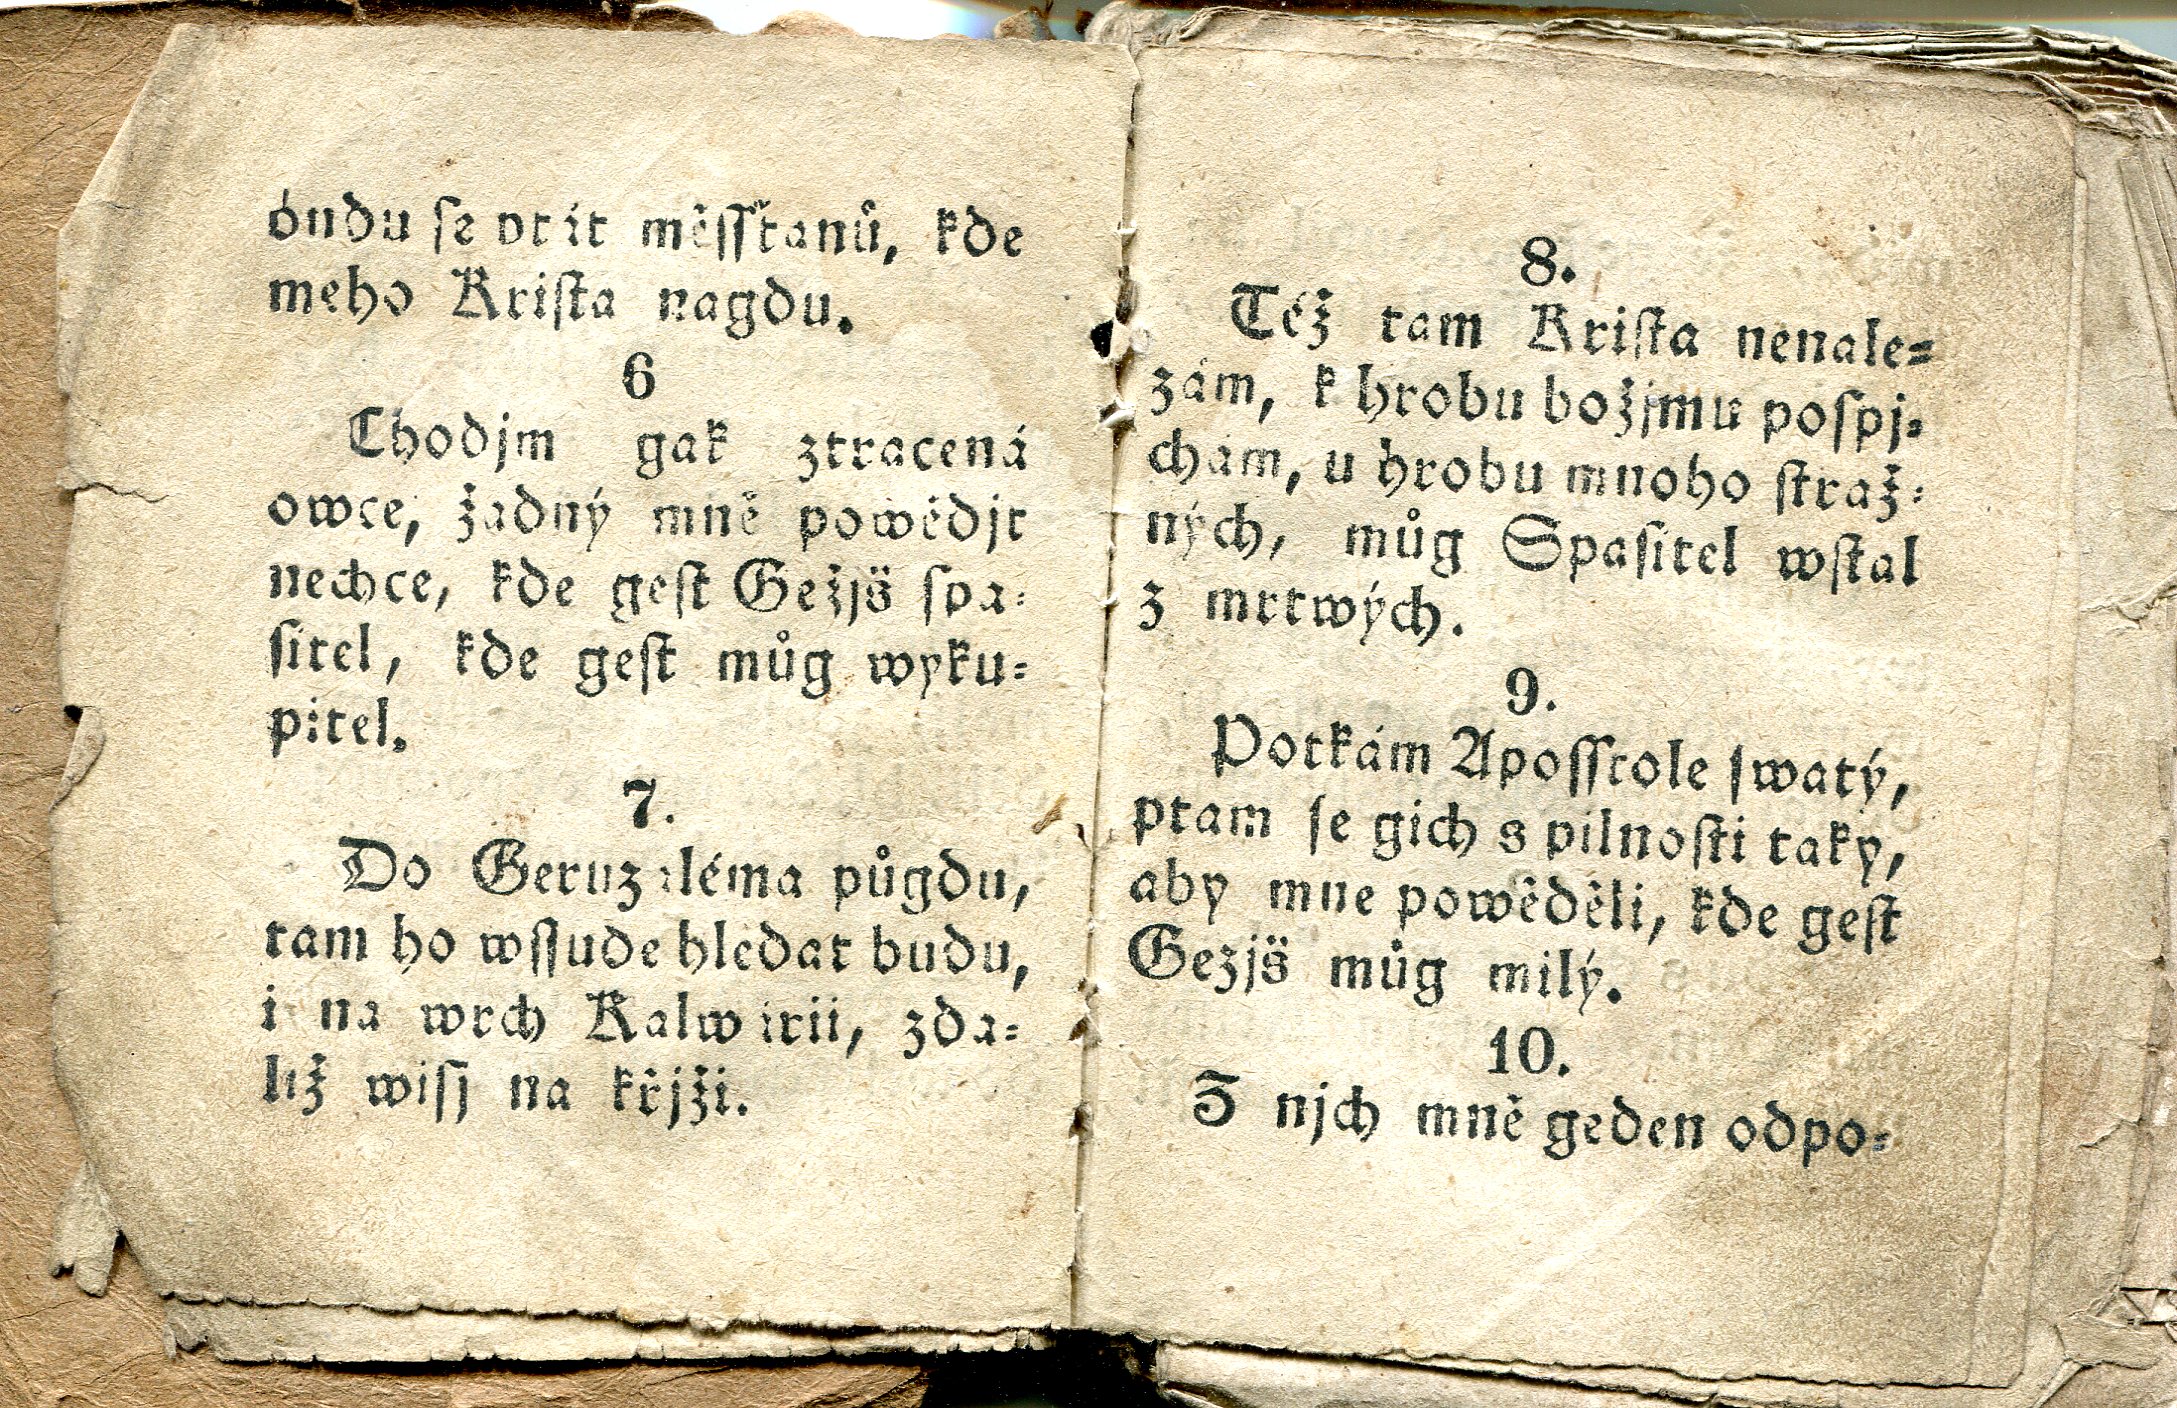 budu se ptát měſſťanů, kde
meho Kriſta nagdu.
6
Chodjm gak ztracená
owce, žadný mně powědjt
nechce, kde geſt Gežjš ſpa-
ſitel, kde geſt můg wyku-
pitel.
7.
Do Geruzaléma půgdu,
tam ho wſſude hledat budu,
i na wrch Kalwarii, zda-
liž wiſý na křjži.
8.
Též tam Kriſta nenale-
zám, k hrobu božjmu poſpj-
chám, u hrobu mnoho ſtraž-
ných, můg Spaſitel wſtal
z mrtwých.
9.
Potkám Apoſſtole ſwatý,
ptam ſe gich s pilnoſti taky,
aby mne powěděli, kde geſt
Gezjš můg milý.
10.
Z njch mně geden odpo-